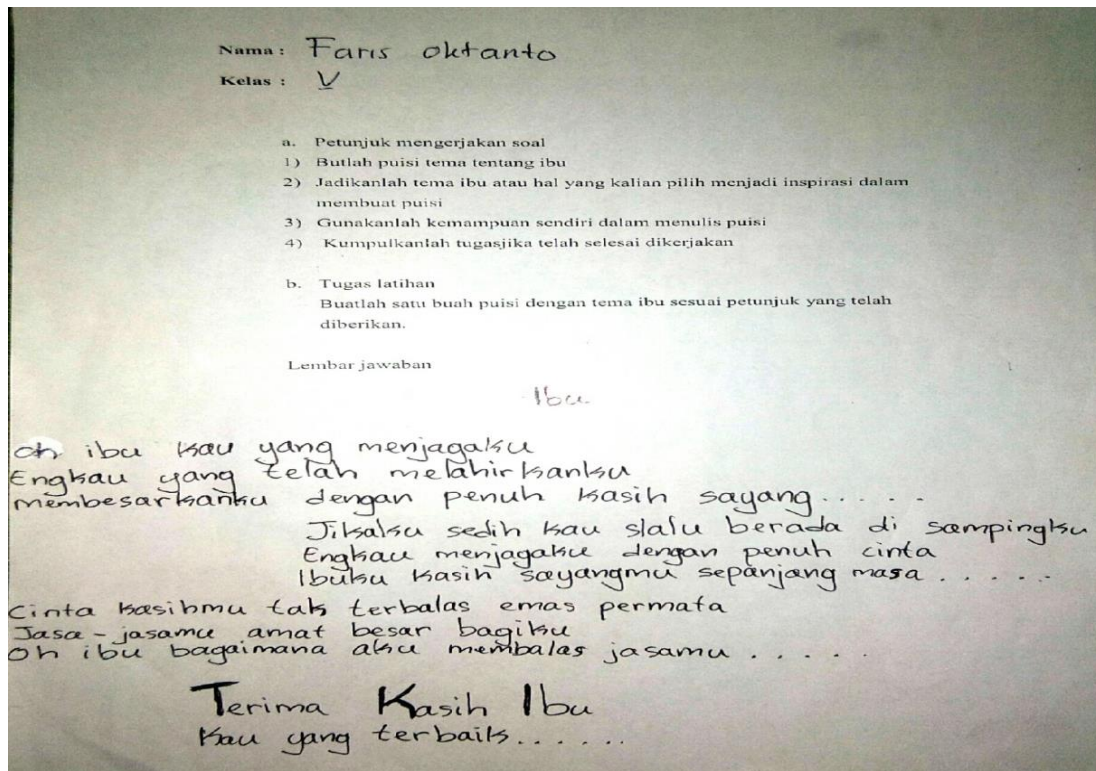 Nama : Faris oktanto
Kelas : V
a. Petunjuk mengerjakan soal
1) Butlah puisi tema tentang ibu
2) Jadikanlah tema ibu atau hal yang kalian pilih menjadi inspirasi dalam
membuat puisi
3) Gunakanlah kemampuan sendiri dalam menulis puisi
4) Kumpulkanlah tugasjika telah selesai dikerjakan
b. Tugas latihan
Buatlah satu buah puisi dengan tema ibu sesuai petunjuk yang telah
diberikan.
Lembar jawaban
Ibu
oh ibu kau yang menjagaku
Engkau yang telah melahirkanku
membesarkanku dengan penuh kasih sayang . . . . .
Jikaku sedih kau slalu berada di sampingku
Engkau menjagaku dengan penuh cinta
Ibuku kasih sayangmu sepanjang masa . . . . . .
Cinta kasihmu tak terbalas emas permata
Jasa-jasamu amat besar bagiku
oh ibu bagaimana aku membalas jasamu . . . . .
Terima Kasih Ibu
Kau yang terbaik . . . . . .